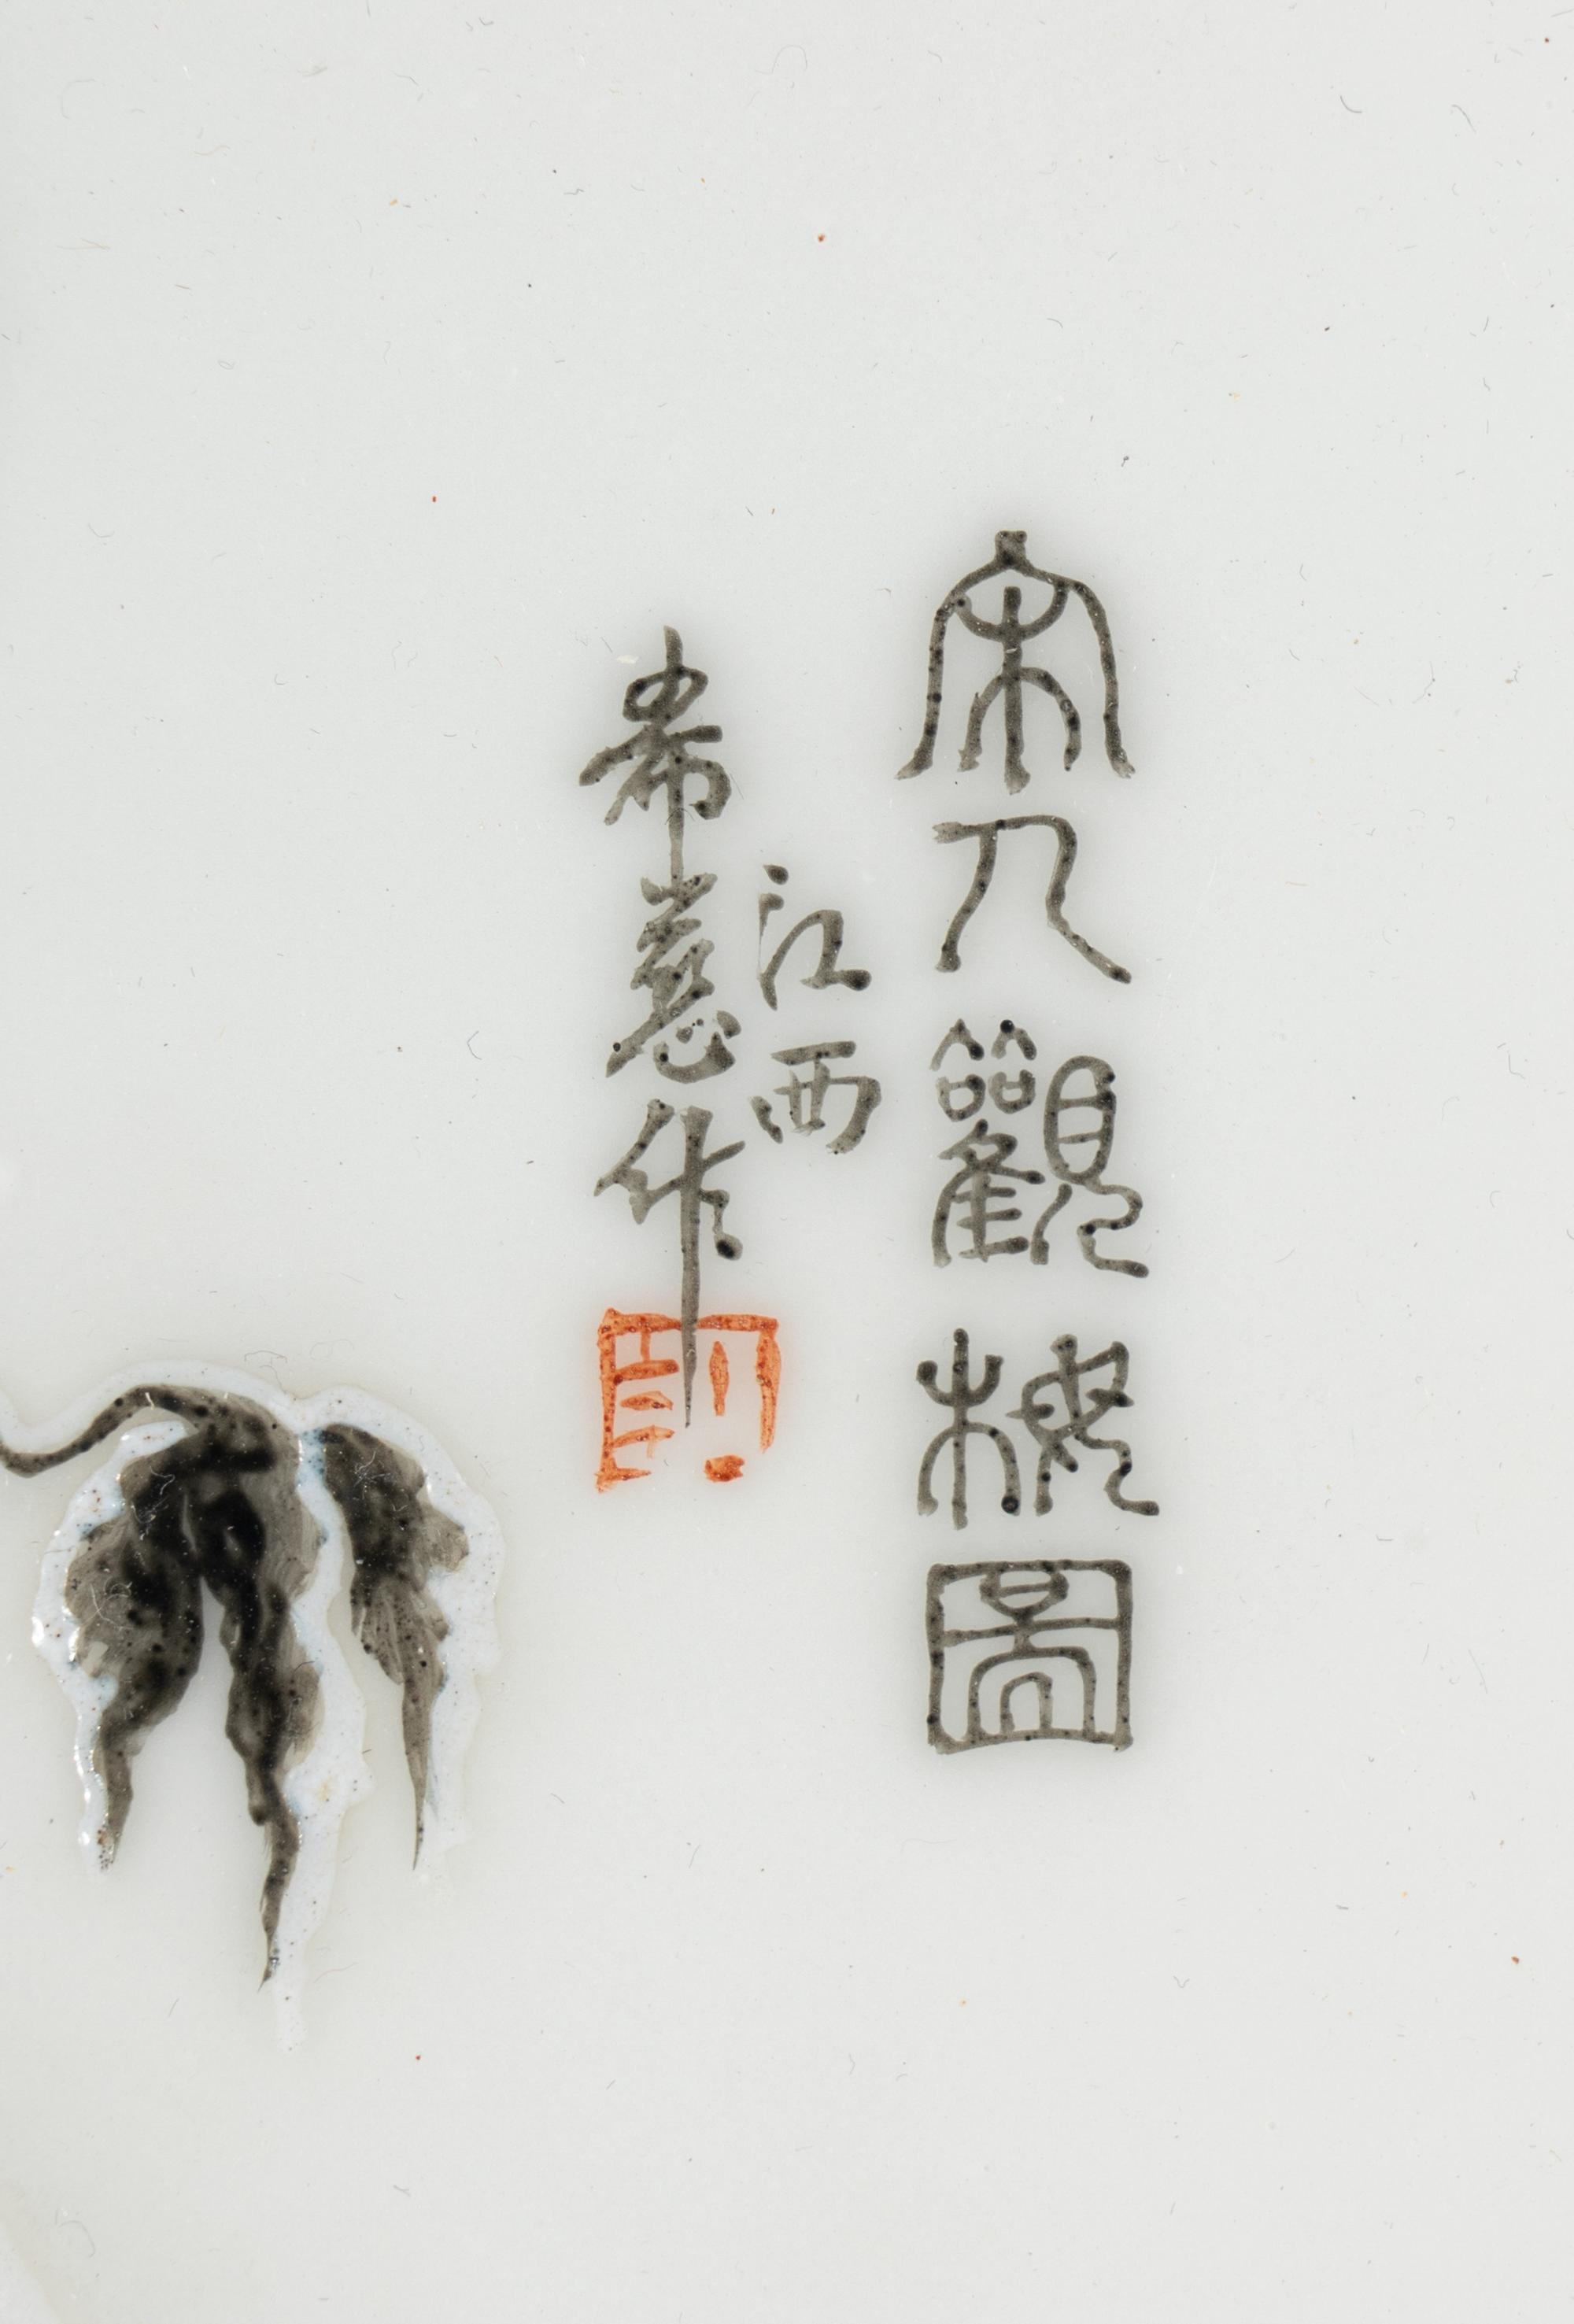 宋人觀梅圖
江西
希慈作